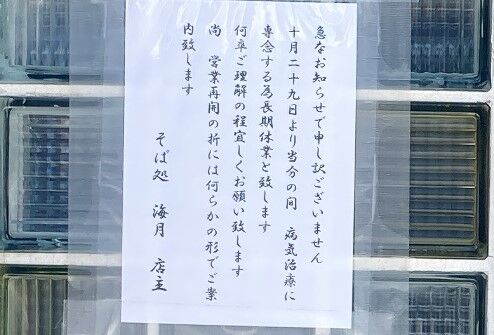 急なお知らせで申し訳ございません
十月二十九日より当分の間　病気治療に
専念する為長期休業と致します
何卒ご理解の程宜しくお願い致します
尚　営業再開の折には何らかの形でご案
内致します
そば処　海月　店主